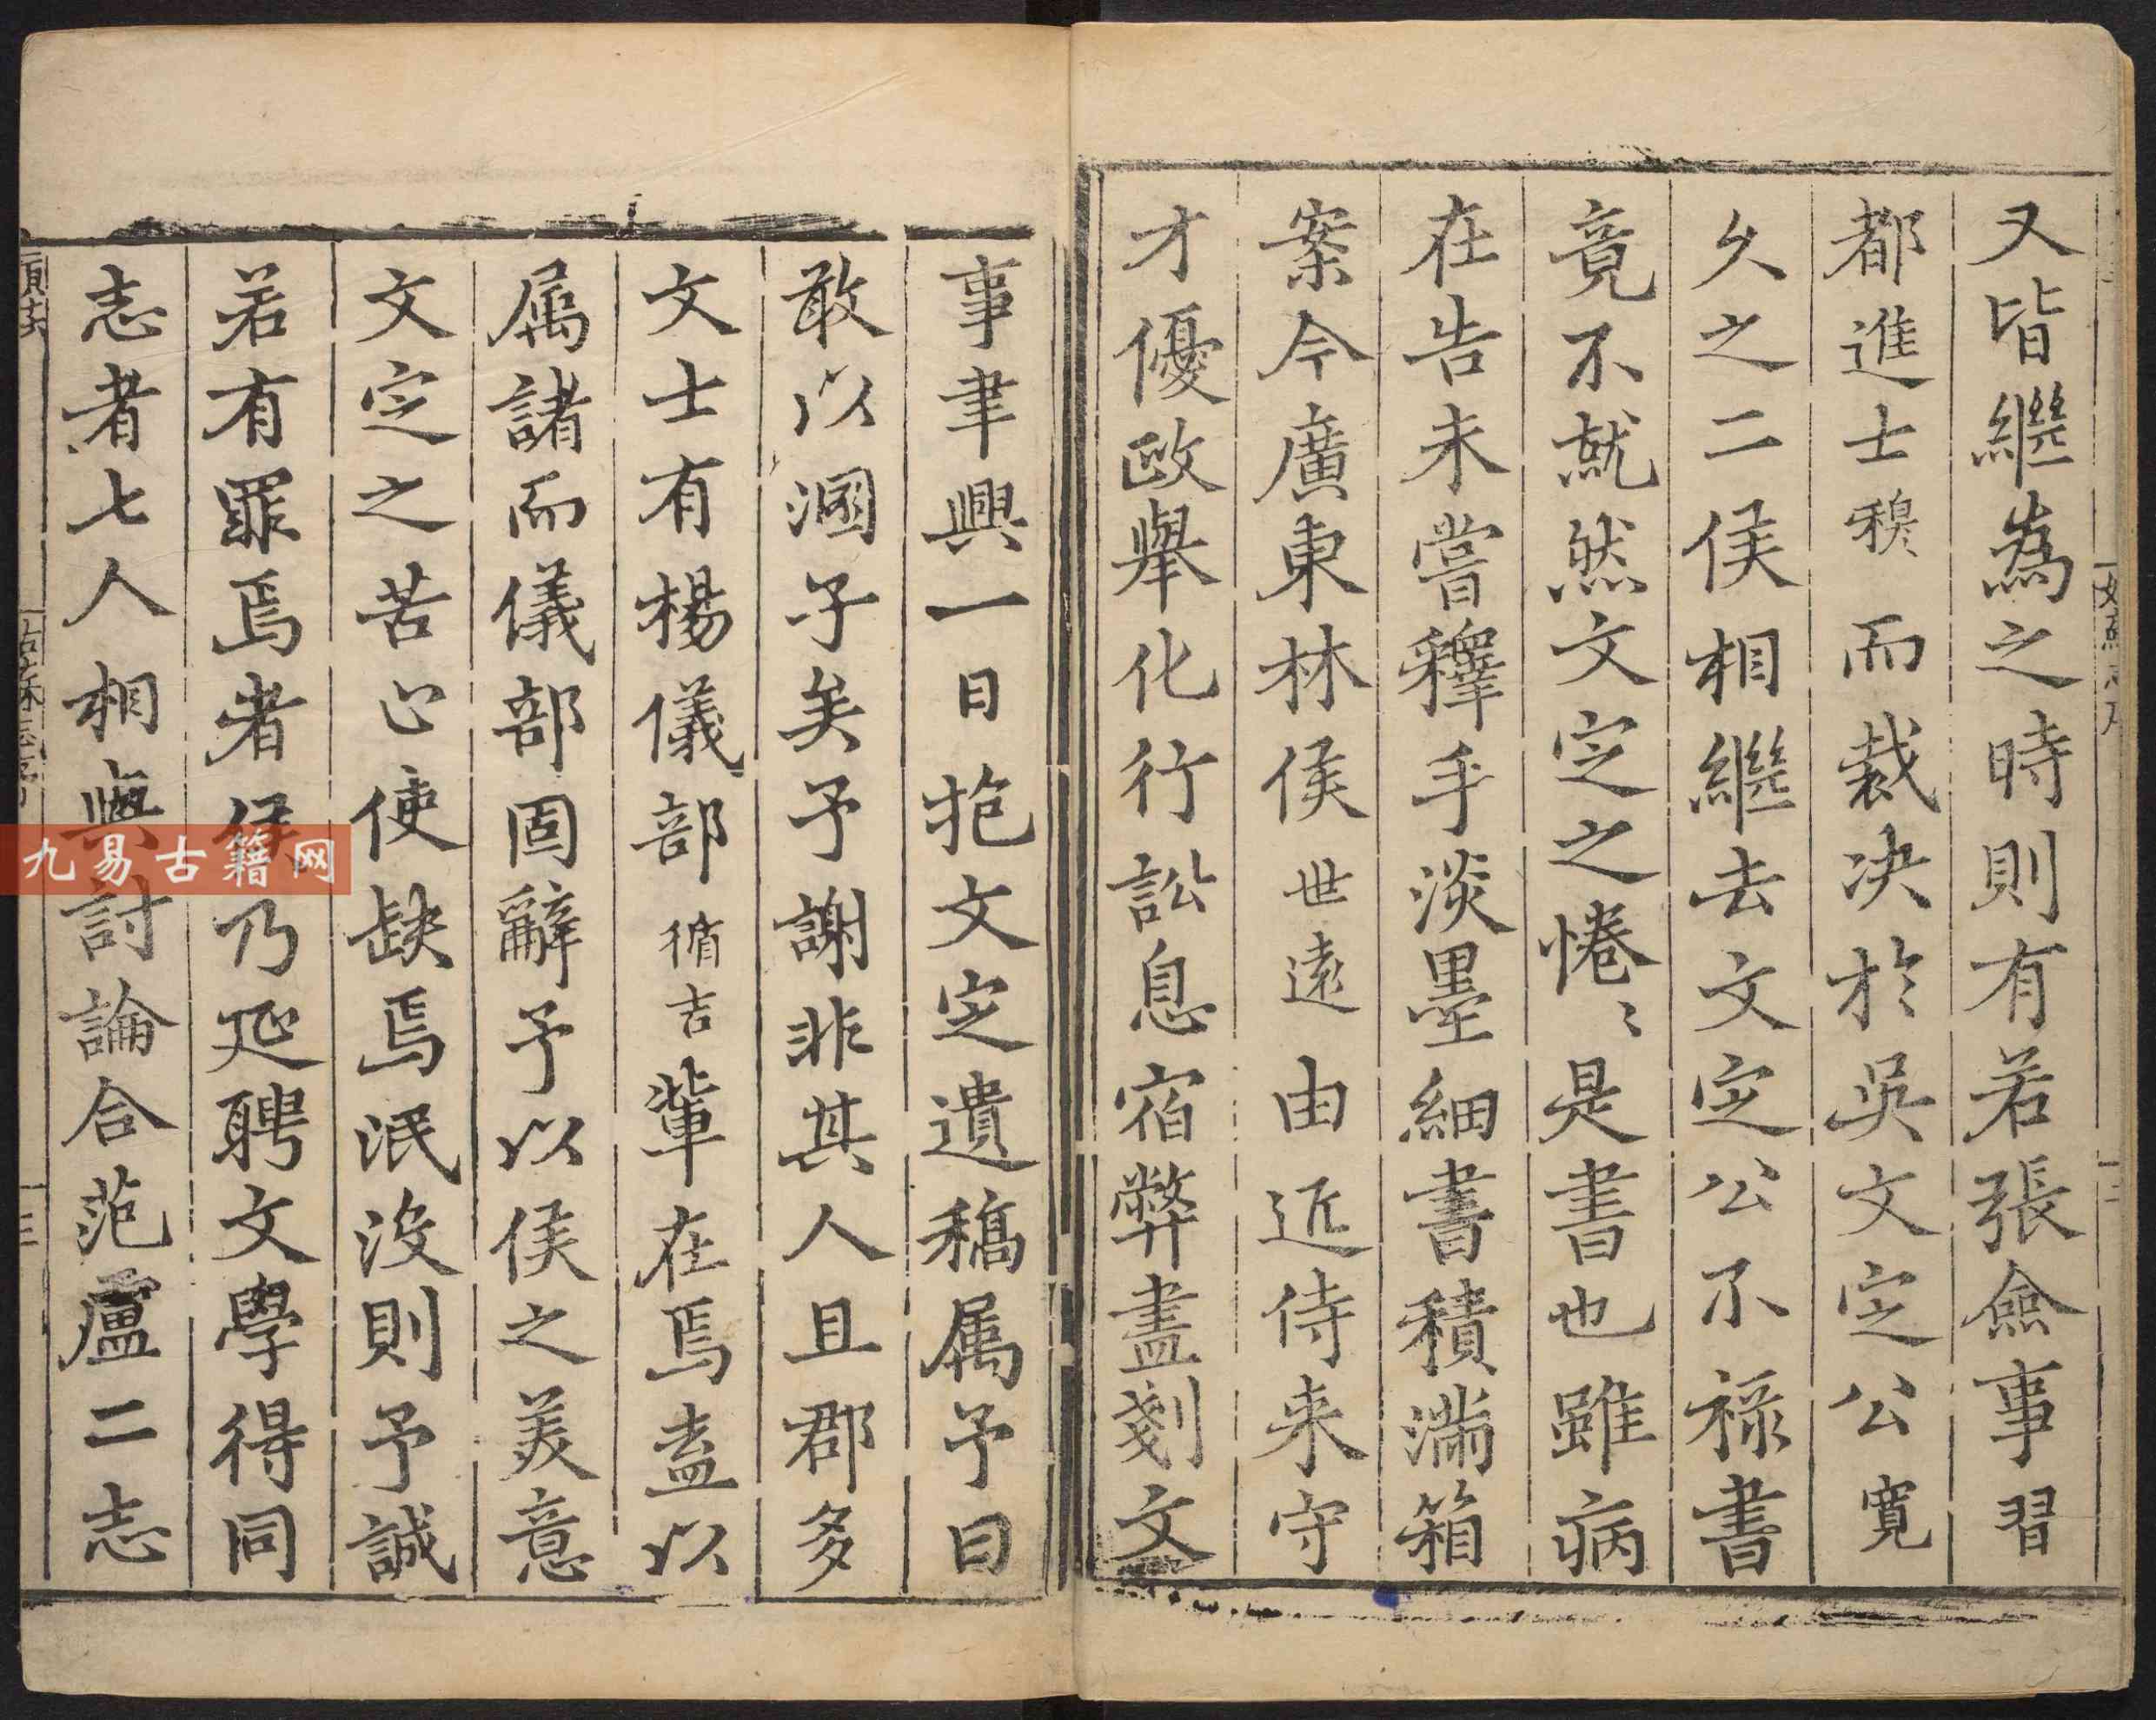 又皆繼為之時則有若張僉事習
都進士穆而裁决於吳文定公寬
久之二侯相繼去文定公不祿書
竟不就然文定之惓〻是書也雖病
在告未嘗釋手淡墨細書積滿箱
案今廣東林侯世遠由近侍来守
才優政舉化行訟息宿弊盡剗文
事聿興一日抱文定遺稿属予曰
敢以溷子矣予謝非其人且郡多
文士有楊儀部循吉輩在焉盍以
属諸而儀部固辭予以侯之美意
文定之苦心使缺焉泯没則予誠
若有罪焉者侯乃延聘文學得同
志者七人相與討論合范盧二志
九易古籍网